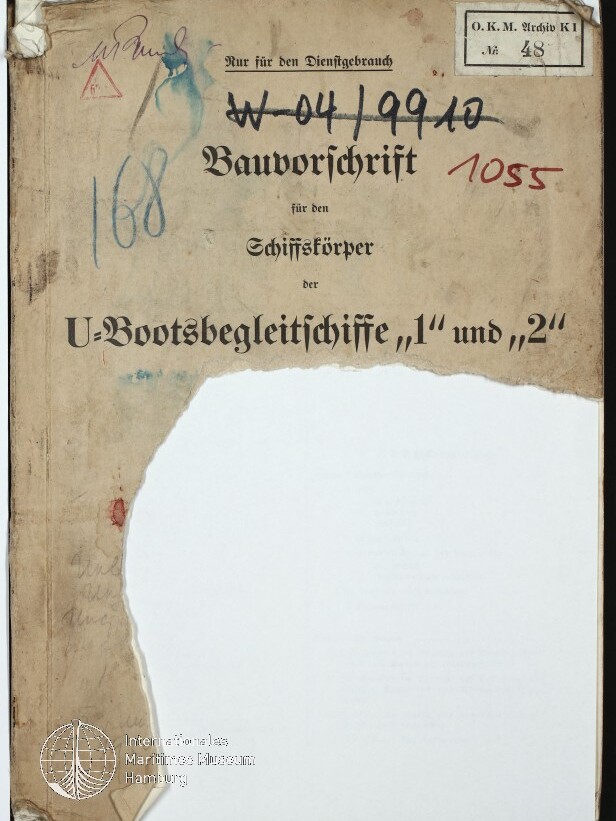 O. K. M. Archiv K I
№: 48
Nur für den Dienstgebrauch
W-04/9910
Bauvorschrift
1055
168
für den
Schiffskörper
der
U=Bootsbegleitschiffe „1“ und „2“
Internationales
Maritimes Museum
Hamburg